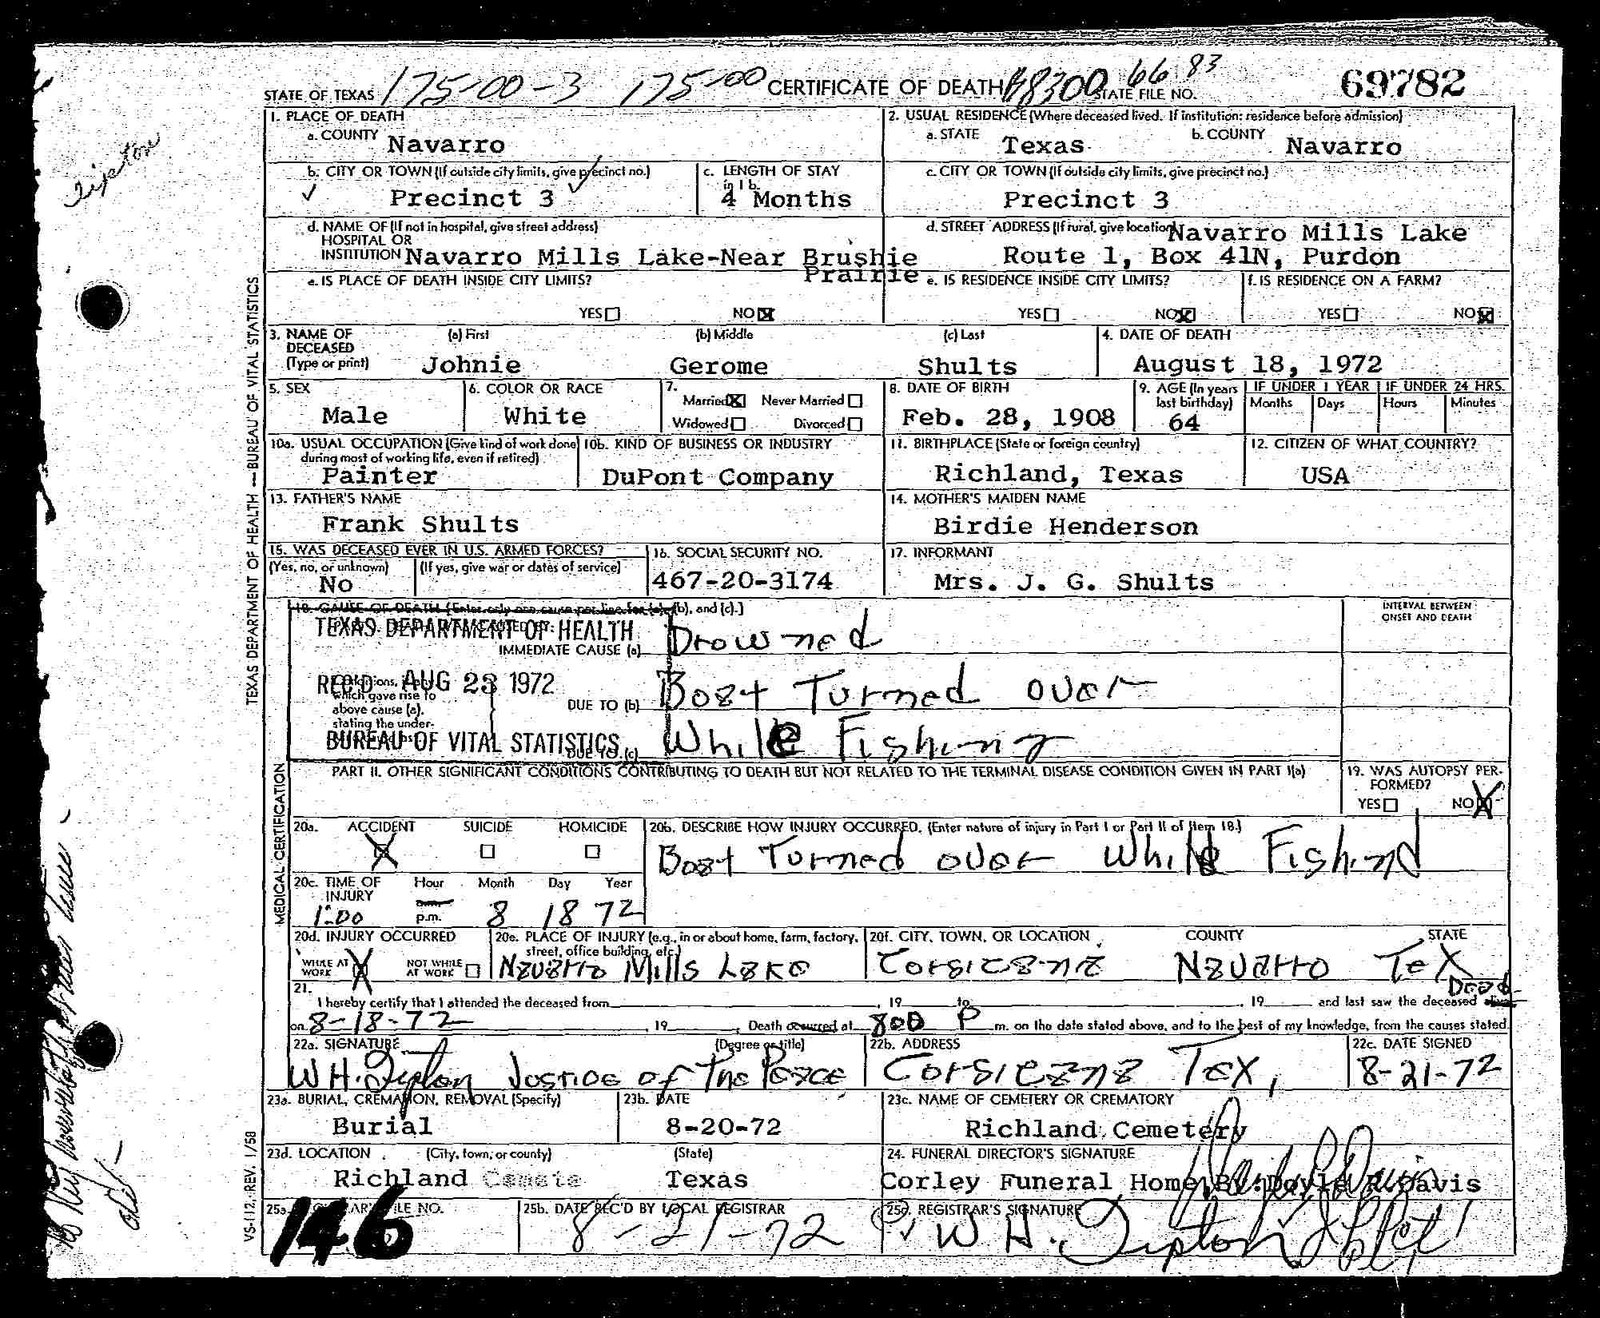 STATE OF TEXAS 175-00-3 175-00 CERTIFICATE OF DEATH 66 83 STATE FILE NO. 69782
1. PLACE OF DEATH
a. COUNTY Navarro
2. USUAL RESIDENCE (Where deceased lived. If institution: residence before admission)
a. STATE Texas b. COUNTY Navarro
b. CITY OR TOWN (If outside city limits, give precinct no.) Precinct 3
c. LENGTH OF STAY in 1b. 4 Months
c. CITY OR TOWN (If outside city limits, give precinct no.) Precinct 3
d. NAME OF (If not in hospital, give street address)
HOSPITAL OR
INSTITUTION Navarro Mills Lake-Near Brushie
Prairie
d. STREET ADDRESS (If rural, give location) Navarro Mills Lake
Route 1, Box 41N, Purdon
e. IS PLACE OF DEATH INSIDE CITY LIMITS?
YES NO X
e. IS RESIDENCE INSIDE CITY LIMITS?
YES NO X
f. IS RESIDENCE ON A FARM?
YES NO X
3. NAME OF DECEASED (Type or print)
(a) First (b) Middle (c) Last
Johnie Gerome Shults
4. DATE OF DEATH
August 18, 1972
5. SEX
Male
6. COLOR OR RACE
White
7.
Married X Never Married
Widowed Divorced
8. DATE OF BIRTH
Feb. 28, 1908
9. AGE (In years last birthday)
64
IF UNDER 1 YEAR
Months Days
IF UNDER 24 HRS.
Hours Minutes
10a. USUAL OCCUPATION (Give kind of work done
during most of working life, even if retired)
Painter
10b. KIND OF BUSINESS OR INDUSTRY
DuPont Company
11. BIRTHPLACE (State or foreign country)
Richland, Texas
12. CITIZEN OF WHAT COUNTRY?
USA
13. FATHER'S NAME
Frank Shults
14. MOTHER'S MAIDEN NAME
Birdie Henderson
15. WAS DECEASED EVER IN U.S. ARMED FORCES?
(Yes, no, or unknown) (If yes, give war or dates of service)
No
16. SOCIAL SECURITY NO.
467-20-3174
17. INFORMANT
Mrs. J. G. Shults
18. CAUSE OF DEATH (Enter only one cause per line for (a), (b), and (c).)
INTERVAL BETWEEN
ONSET AND DEATH
TEXAS DEPARTMENT OF HEALTH
IMMEDIATE CAUSE (a) Drowned
REC'D AUG 23 1972
which gave rise to
above cause (a),
stating the under-
DUE TO (b) Boat Turned over
BUREAU OF VITAL STATISTICS
DUE TO (c) While Fishing
PART II. OTHER SIGNIFICANT CONDITIONS CONTRIBUTING TO DEATH BUT NOT RELATED TO THE TERMINAL DISEASE CONDITION GIVEN IN PART I(a)
19. WAS AUTOPSY PER-
FORMED?
YES NO X
20a. ACCIDENT SUICIDE HOMICIDE
X
20b. DESCRIBE HOW INJURY OCCURRED. (Enter nature of injury in Part I or Part II of Item 18.)
Boat Turned over While Fishing
20c. TIME OF INJURY
Hour Month Day Year
1:00 p.m. 8 18 72
20d. INJURY OCCURRED
WHILE AT WORK X NOT WHILE AT WORK
20e. PLACE OF INJURY (e.g., in or about home, farm, factory,
street, office building, etc.)
Navarro Mills Lake
20f. CITY, TOWN, OR LOCATION COUNTY STATE
Corsicana Navarro Tex
21.
I hereby certify that I attended the deceased from , 19 to , 19 and last saw the deceased alive Dead
on 8-18-72 , 19 , Death occurred at 800 P m. on the date stated above, and to the best of my knowledge, from the causes stated.
22a. SIGNATURE (Degree or title)
W H. Tipton Justice of The Peace
22b. ADDRESS
Corsicana Tex,
22c. DATE SIGNED
8-21-72
23a. BURIAL, CREMATION, REMOVAL (Specify)
Burial
23b. DATE
8-20-72
23c. NAME OF CEMETERY OR CREMATORY
Richland Cemetery
23d. LOCATION (City, town, or county) (State)
Richland Texas
24. FUNERAL DIRECTOR'S SIGNATURE
Corley Funeral Home By: Doyle R. Davis
25a. REGISTRAR'S FILE NO.
146
25b. DATE REC'D BY LOCAL REGISTRAR
8-21-72
25c. REGISTRAR'S SIGNATURE
W H. Tipton
TEXAS DEPARTMENT OF HEALTH — BUREAU OF VITAL STATISTICS
MEDICAL CERTIFICATION
VS-112, REV. 1/58
Tipton